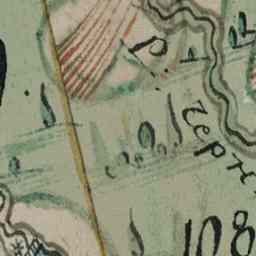 р.
черн
108